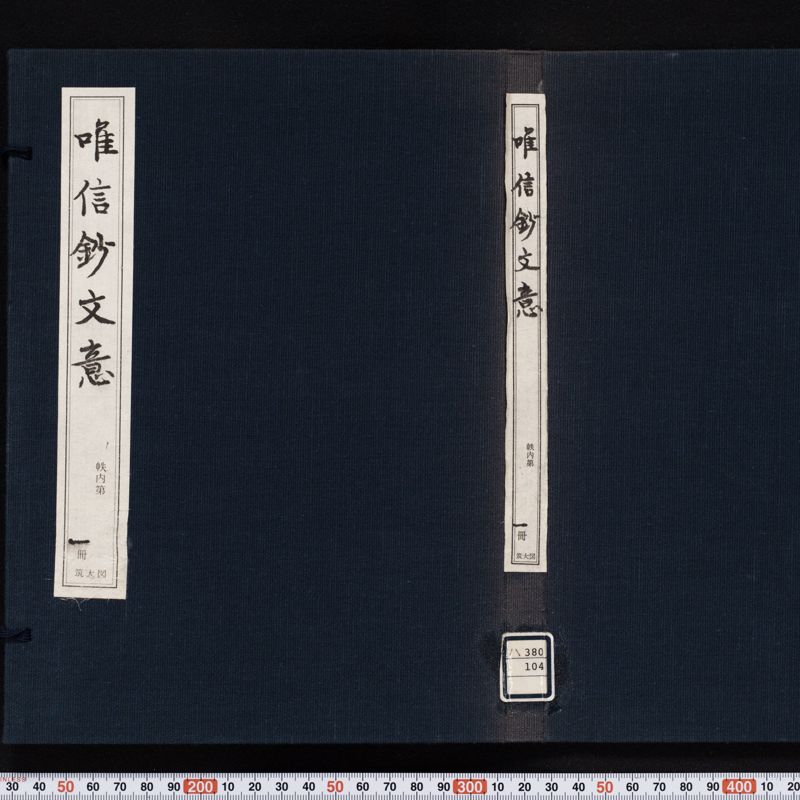 唯信鈔文意
帙内第
一冊
筑大図
唯信鈔文意
帙内第
一冊
筑大図
ハ380
104
30 40 50 60 70 80 90 200 10 20 30 40 50 60 70 80 90 300 10 20 30 40 50 60 70 80 90 400 10 20